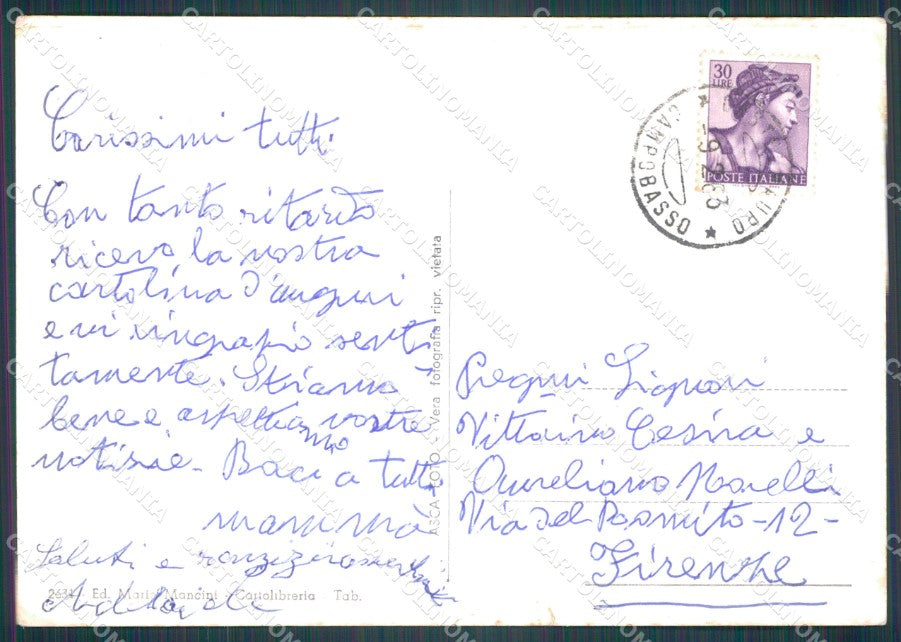 Carissimi tutti.
Con tanto ritardo
ricevo la vostra
cartolina d'auguri
e vi ringrazio senti
tamente. Stiamo
bene e aspettiamo vostre
notizie - Baci a tutti
mamma
Saluti e ringraziamenti
2631 - Ed. Maria Mancini - Cartolibreria Tab.
ASCA FOTO - Vera fotografia ripr. vietata
30
LIRE
POSTE ITALIANE
CAMPOBASSO
-9.2.63
Pregmi Signori
Vittorino Cesira e
Aureliano Morelli
Via del Posmito - 12 -
Firenze
CARTOLINOMANIA